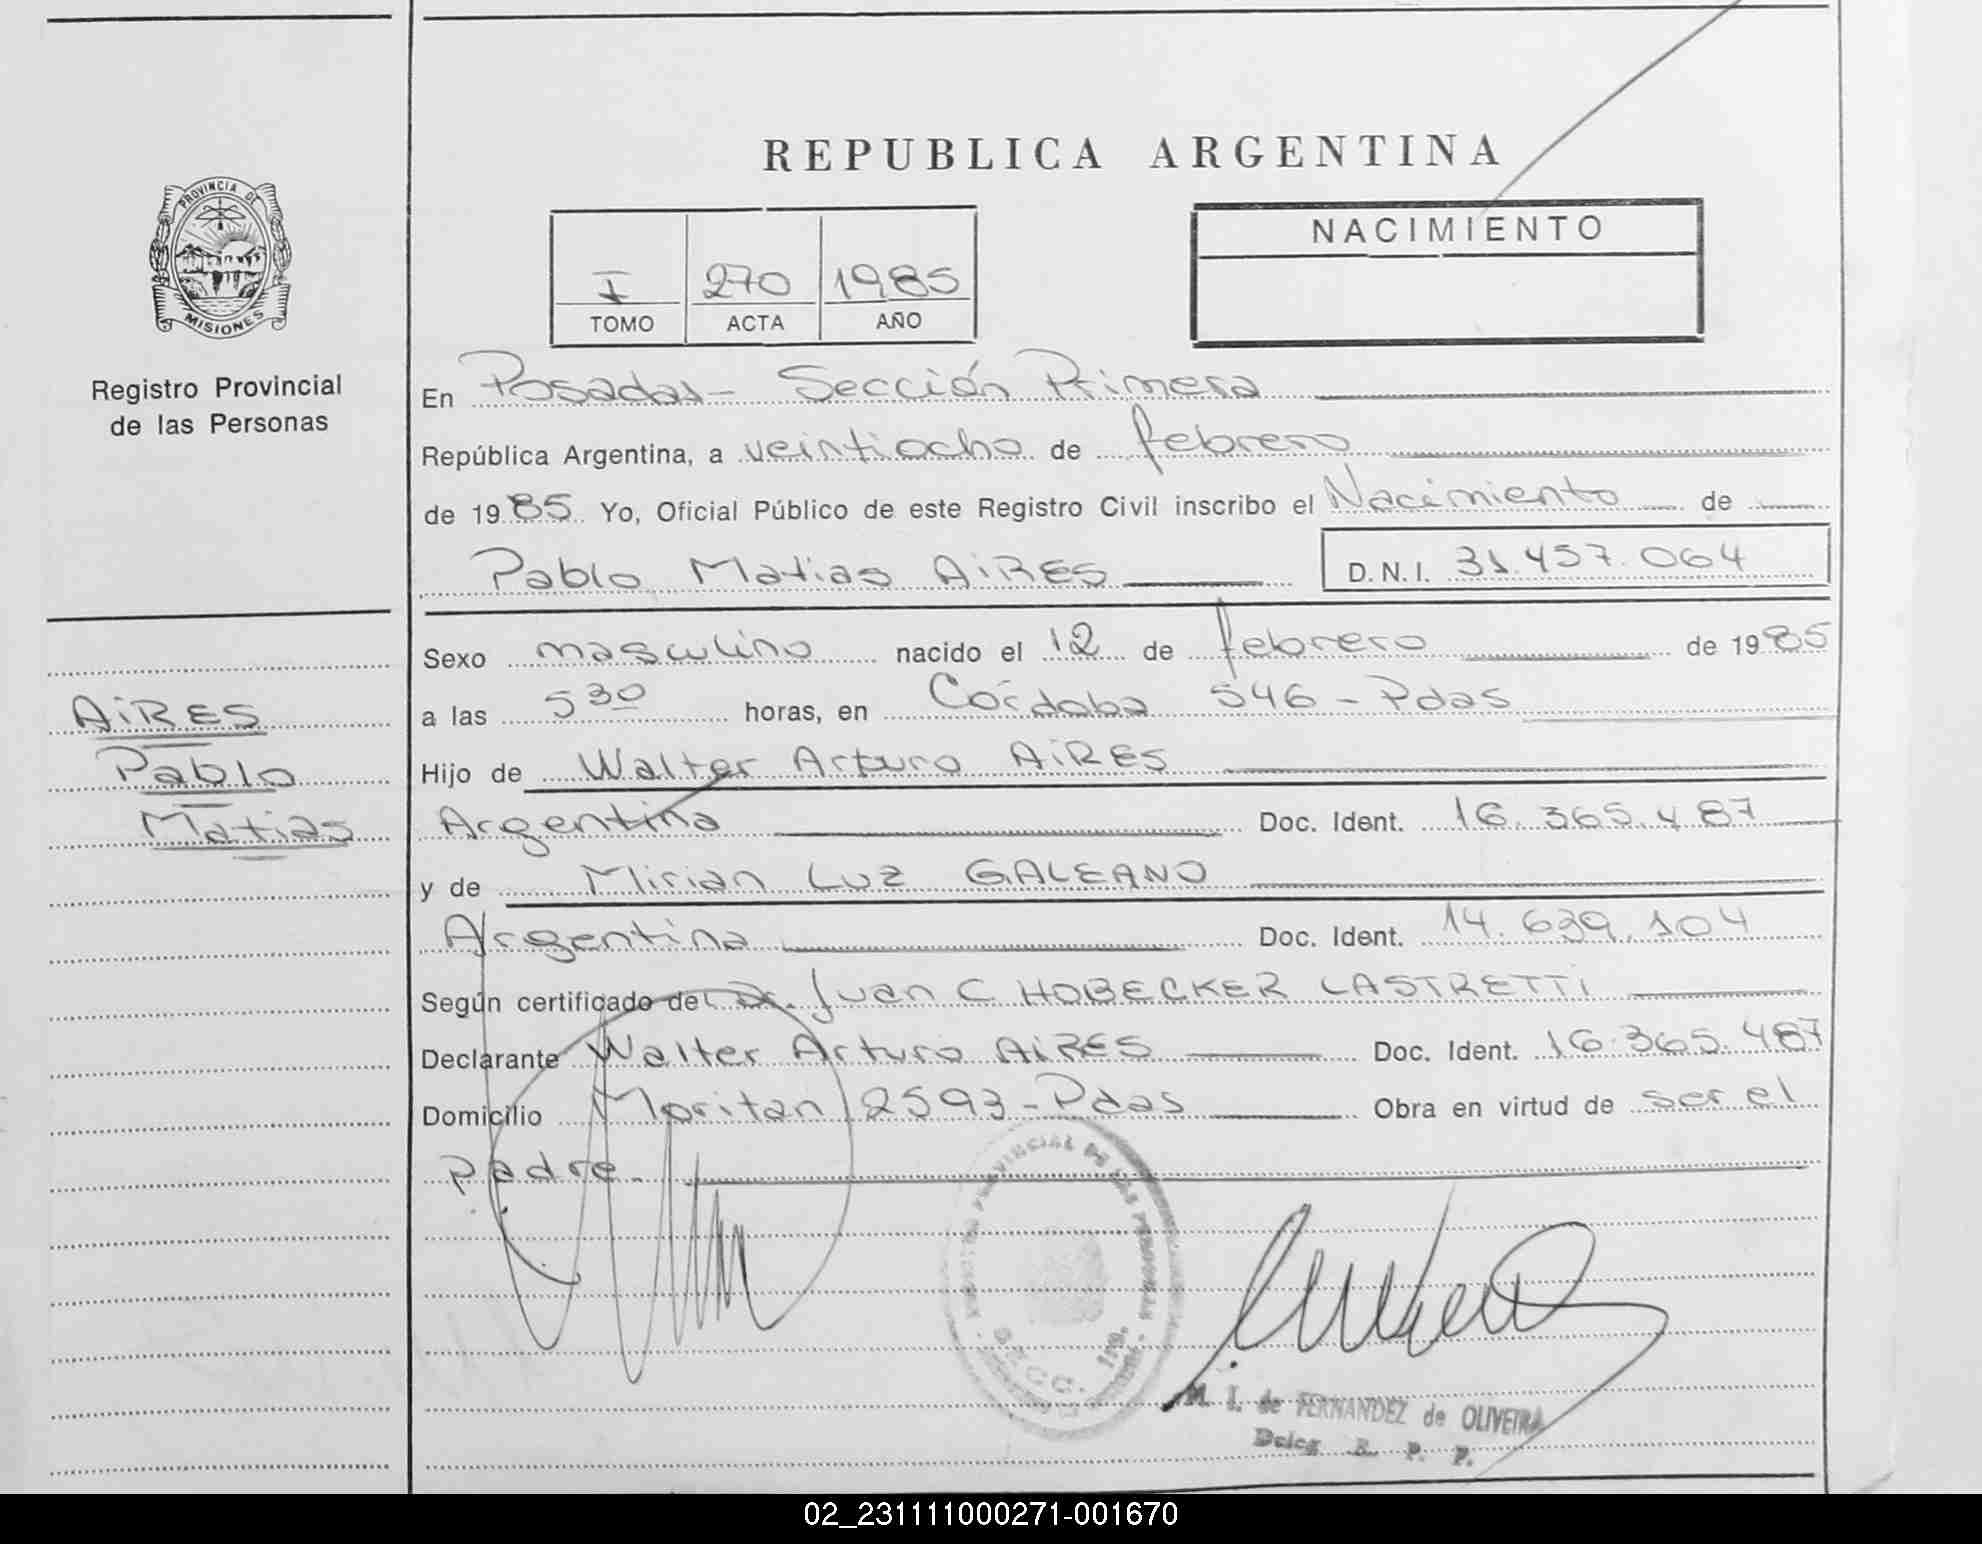 REPUBLICA ARGENTINA
PROVINCIA DE
MISIONES
Registro Provincial
de las Personas
I 270 1985
TOMO ACTA AÑO
NACIMIENTO
En Posadas - Sección Primera
República Argentina, a veintiocho de febrero
de 1985 Yo, Oficial Público de este Registro Civil inscribo el Nacimiento de
Pablo Matias AiRES D.N.I. 31.457.064
Sexo masculino nacido el 12 de febrero de 1985
AiRES
a las 5 30 horas, en Córdoba 546 - Pdas
Pablo
Hijo de Walter Arturo AiRES
Matias
Argentina Doc. Ident. 16.365.487
y de Mirian Luz GALEANO
Argentina Doc. Ident. 14.639.104
Según certificado del Dr. Juan C HOBECKER LASTRETTI
Declarante Walter Arturo AiRES Doc. Ident. 16.365.487
Domicilio Moritan 2593 - Pdas Obra en virtud de ser el
padre.
PROVINCIAL DE LAS PERSONAS
M. I. de FERNANDEZ de OLIVEIRA
Deleg R. P. P.
02_231111000271-001670